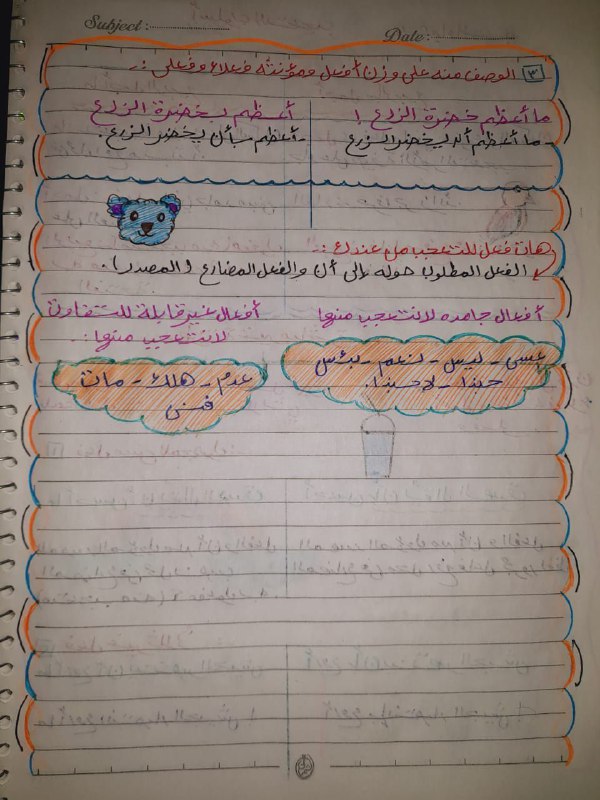 Subject:
Date:
٣ الوصف منه على وزن أفعل ومؤنثه فعلاء وفعلى :.
ما أعظم خضرة الزرع !
أعظم بخضرة الزرع
- ما أعظم أن يخضر الزرع
- أعظم بأن يخضر الزرع.
هات فعل للتعجب من عندك :.
الفعل المطلوب حوله إلى أن والفعل المضارع (المصدر).
أفعال جامده لا نتعجب منها
عسى - ليس - نعم - بئس
حبذا - لا حبذا.
أفعال غير قابلة للتفاوت
لا نتعجب منها :
عدم - هلك - مات
فنى